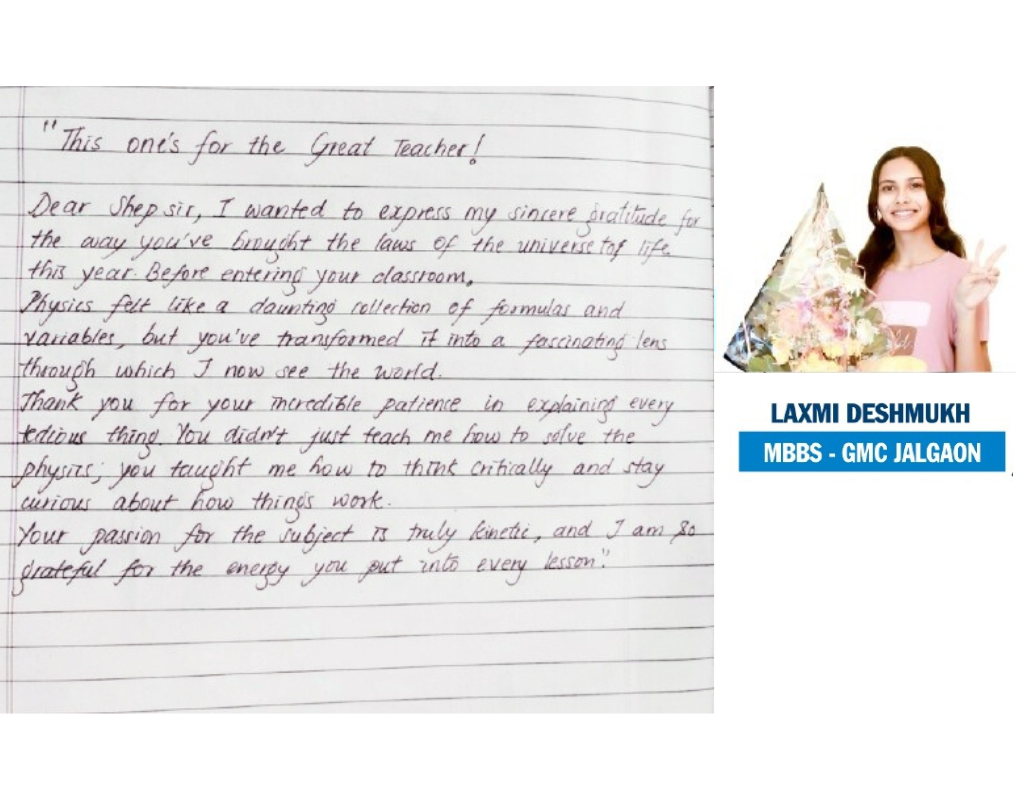 "This one's for the Great Teacher!
Dear Shep sir, I wanted to express my sincere gratitude for
the way you've brought the laws of the universe to life
this year. Before entering your classroom,
Physics felt like a daunting collection of formulas and
variables, but you've transformed it into a fascinating lens
through which I now see the world.
Thank you for your incredible patience in explaining every
tedious thing. You didn't just teach me how to solve the
physics; you taught me how to think critically and stay
curious about how things work.
Your passion for the subject is truly kinetic, and I am so
grateful for the energy you put into every lesson."
LAXMI DESHMUKH
MBBS - GMC JALGAON